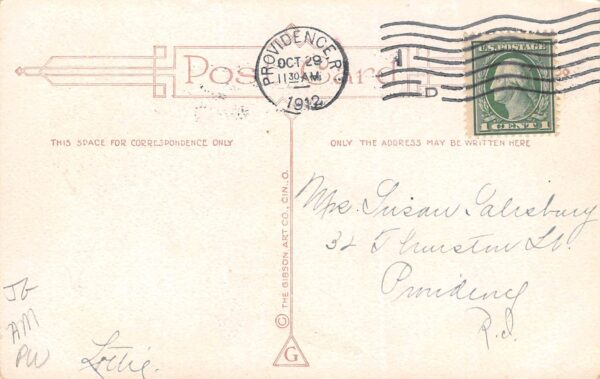 Post Card
PROVIDENCE, R.I.
OCT 29
11 30 AM
1912
1
D
U.S. POSTAGE
1 CENT 1
THIS SPACE FOR CORRESPONDENCE ONLY
ONLY THE ADDRESS MAY BE WRITTEN HERE
© THE GIBSON ART CO., CIN., O.
G
Mrs. Susan Salisbury
32 Thurston St.
Providency
R.I.
JG
AM
PW
Lottie.